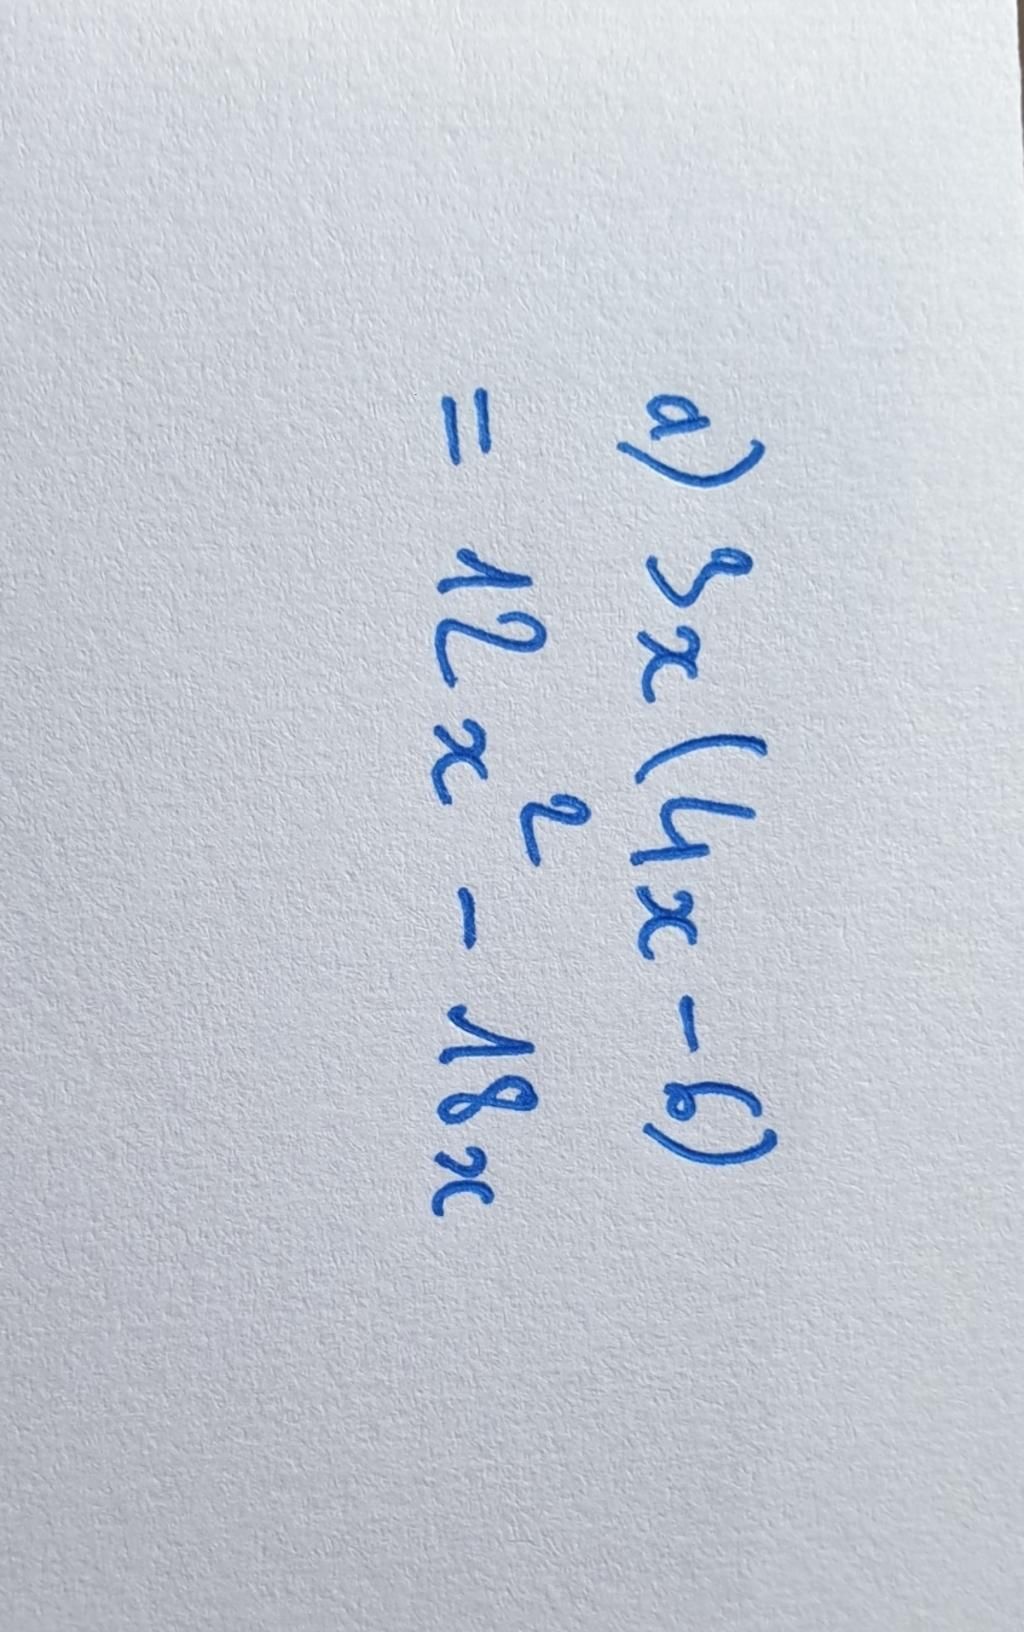 a) 3x (4x - 6)
= 12x² - 18x